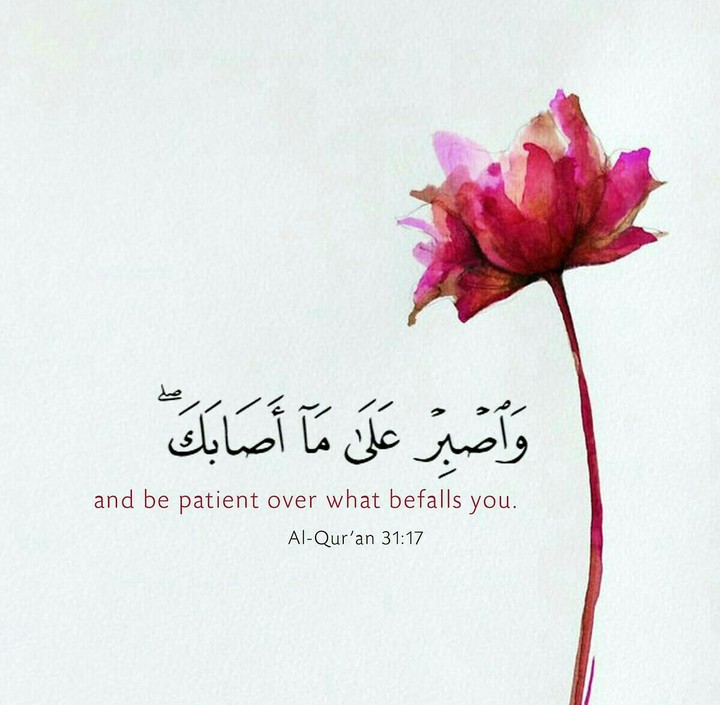 وَٱصۡبِرۡ عَلَىٰ مَآ أَصَابَكَۖ
and be patient over what befalls you.
Al-Qur’an 31:17